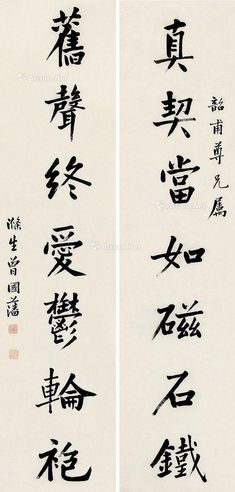 韶甫尊兄属
真契當如磁石鐵
舊聲終愛鬱輪袍
滌生曾國藩